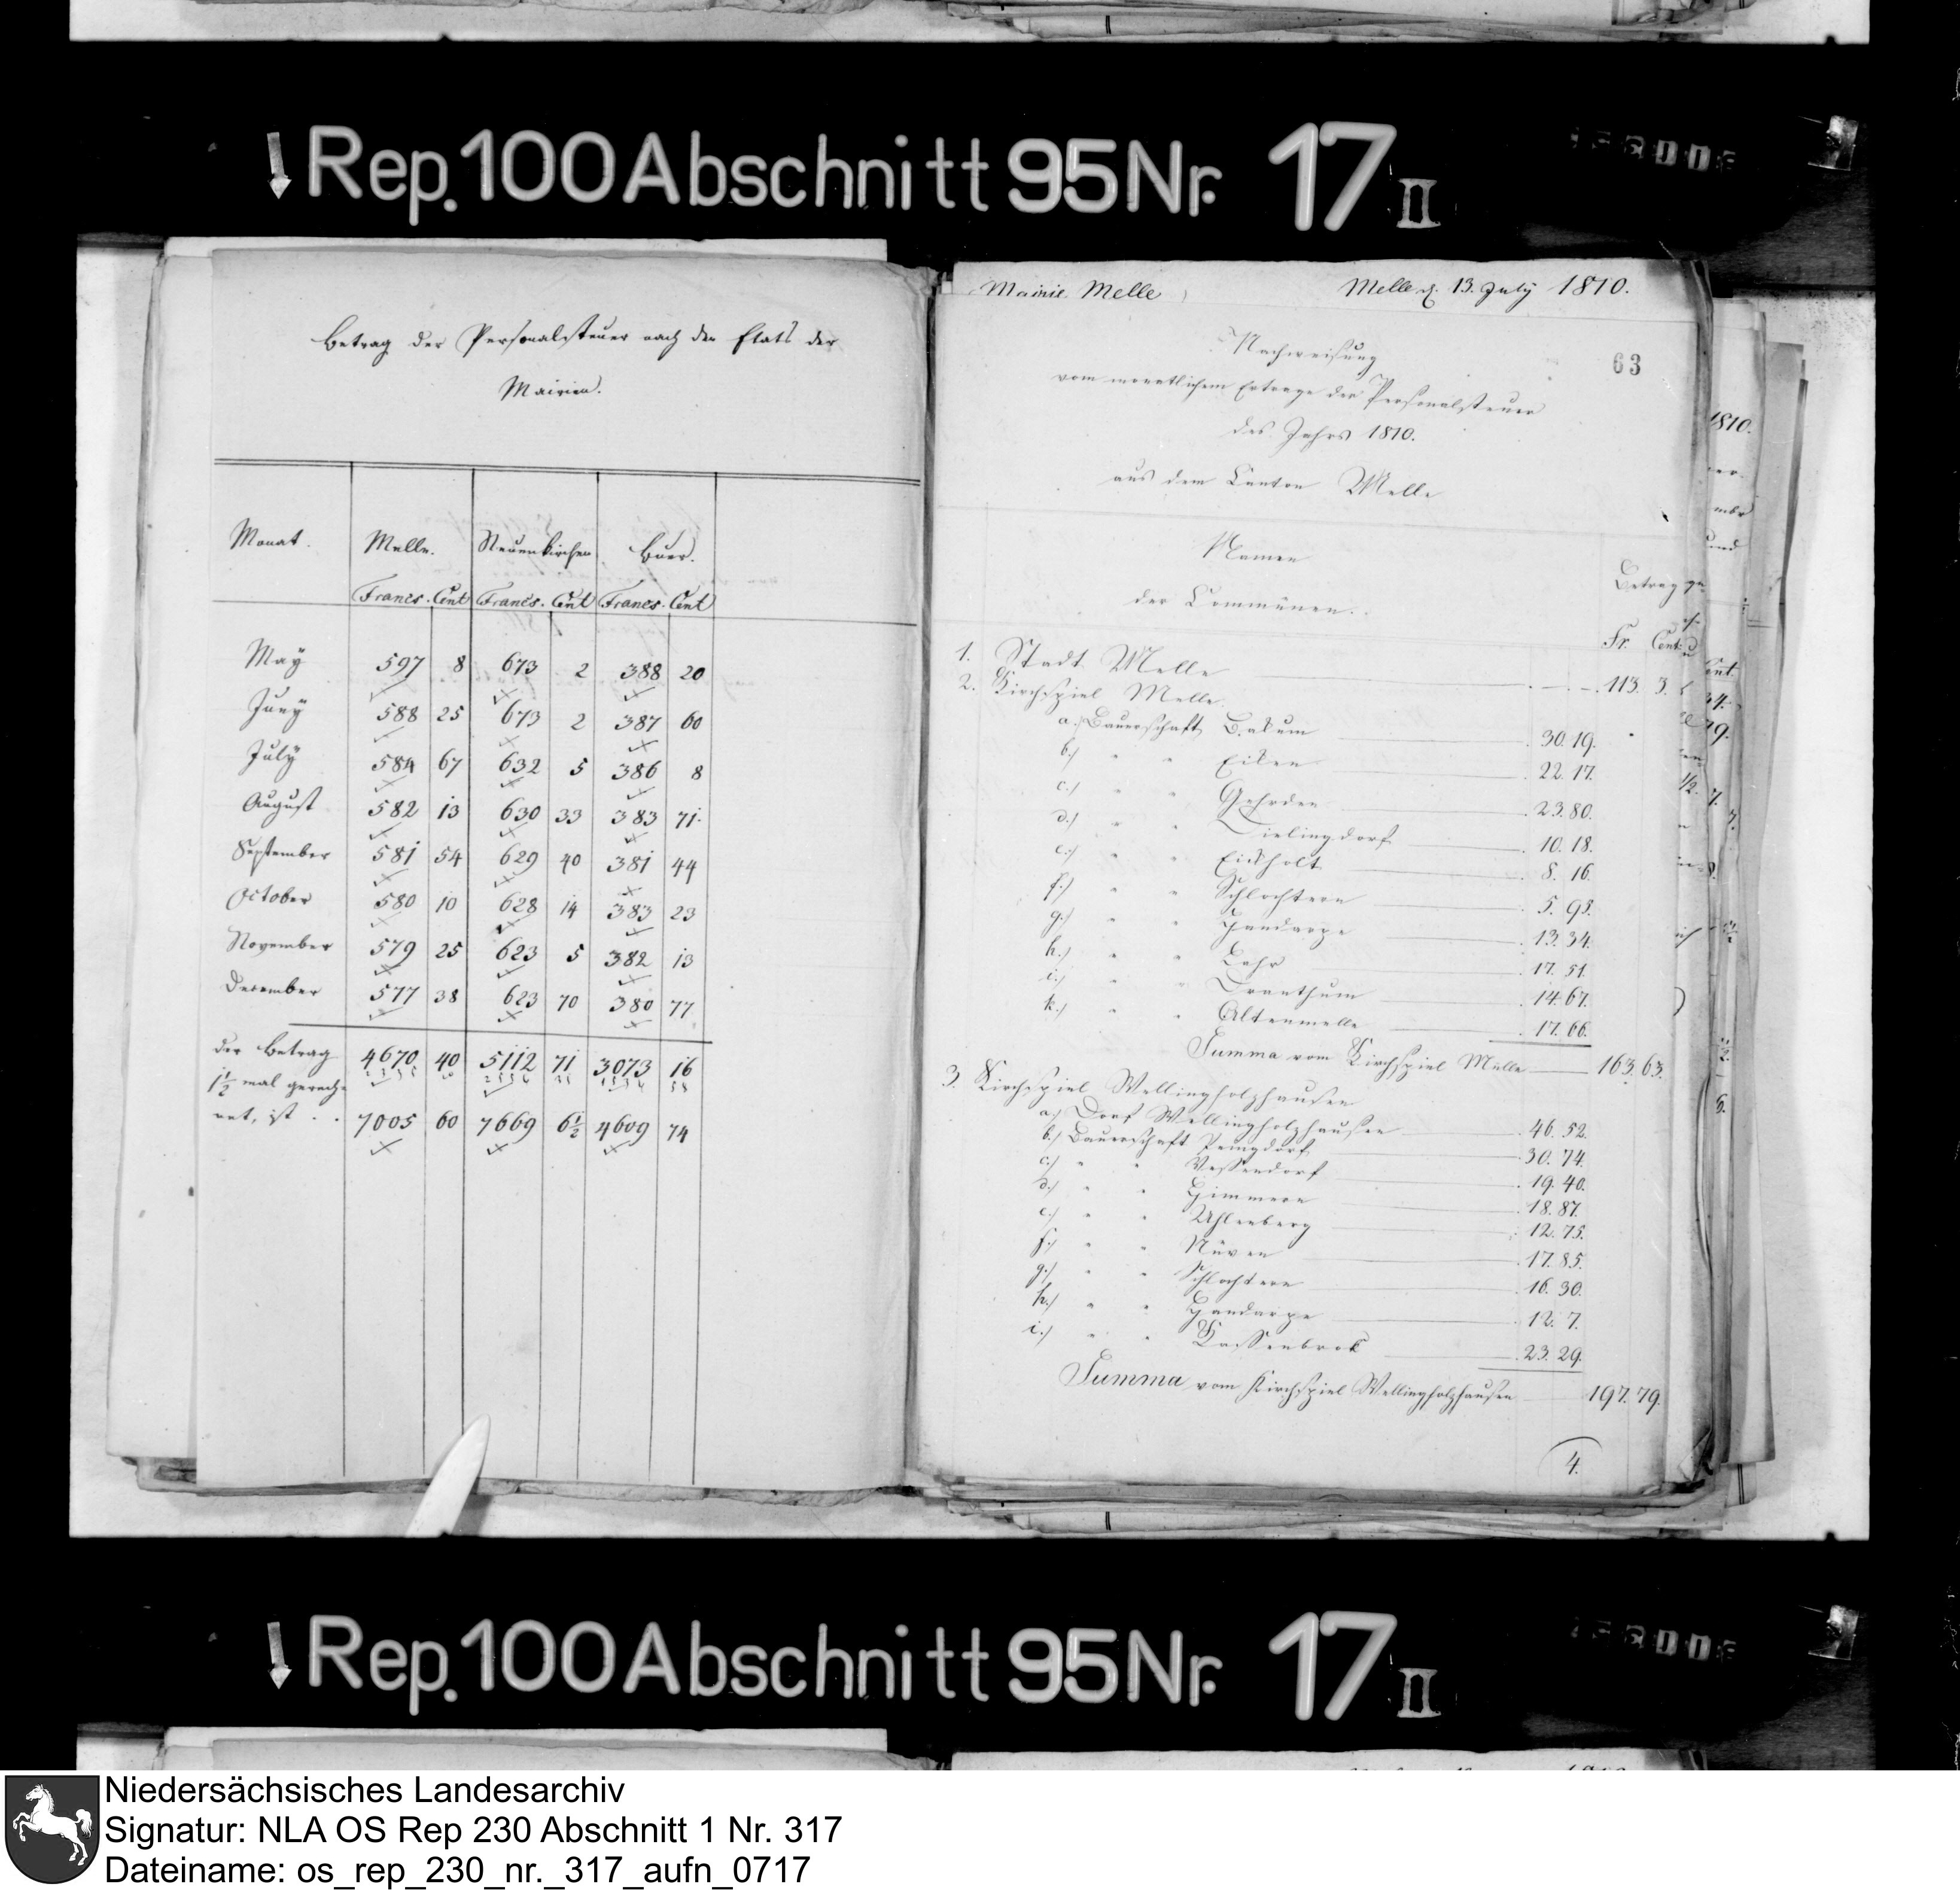 Rep. 100 Abschnitt 95 Nr. 17 II
Betrag der Personalsteuer nach den Etats der
Mairien.
Monat. Melle. Neuenkirchen Buer.
Francs. Cent Francs. Cent Francs. Cent
May 597 8 673 2 388 20
Juny 588 25 673 2 387 60
July 584 67 632 5 386 8
August 582 13 630 33 383 71.
September 581 54 629 40 381 44
October 580 10 628 14 383 23
November 579 25 623 5 382 13
December 577 38 623 70 380 77
der Betrag 4670 40 5112 71 3073 16
1½ mal gerech-
net, ist . . 7005 60 7669 6½ 4609 74
Mairie Melle Melle d. 13. July 1810.
63
Nachweisung
vom monatlichem Ertrage der Personalsteuer
des Jahrs 1810.
aus dem Canton Melle
Namen
der Communen.
Betrag
Fr. Cent:
1. Stadt Melle 113. 3.
2. Kirchspiel Melle.
a.) Bauerschaft Bakum 30. 19.
b.) " " Eiken 22. 17.
c.) " " Gehrden 23. 80.
d.) " " Dielingdorf 10. 18.
e.) " " Eickholt 8. 16.
f.) " " Schlochtern 5. 98.
g.) " " Handarpe 13. 34.
h.) " " Laer 17. 51.
i.) " " Drantum 14. 67.
k.) " " Altenmelle 17. 66.
Summa vom Kirchspiel Melle 163. 63.
3. Kirchspiel Wellingholzhausen
a.) Dorf Wellingholzhausen 46. 52.
b.) Bauerschaft Peingdorf 30. 74.
c.) " " Vessendorf 19. 40.
d.) " " Himmern 18. 87.
e.) " " Uhlenberg 12. 75.
f.) " " Nüven 17. 85.
g.) " " Schlochtern 16. 30.
h.) " " Handarpe 12. 7.
i.) " " Kassenbrok 23. 29.
Summa vom Kirchspiel Wellingholzhausen 197. 79.
4.
Rep. 100 Abschnitt 95 Nr. 17 II
Niedersächsisches Landesarchiv
Signatur: NLA OS Rep 230 Abschnitt 1 Nr. 317
Dateiname: os_rep_230_nr._317_aufn_0717